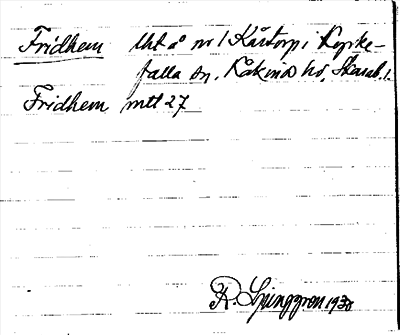 Fridhem lht å nr 1 Kårtorp i Kyrke-
falla sn, Kåkinds hd, Skarab. l.
Fridhem mtl 27
R. Ljunggren 1930